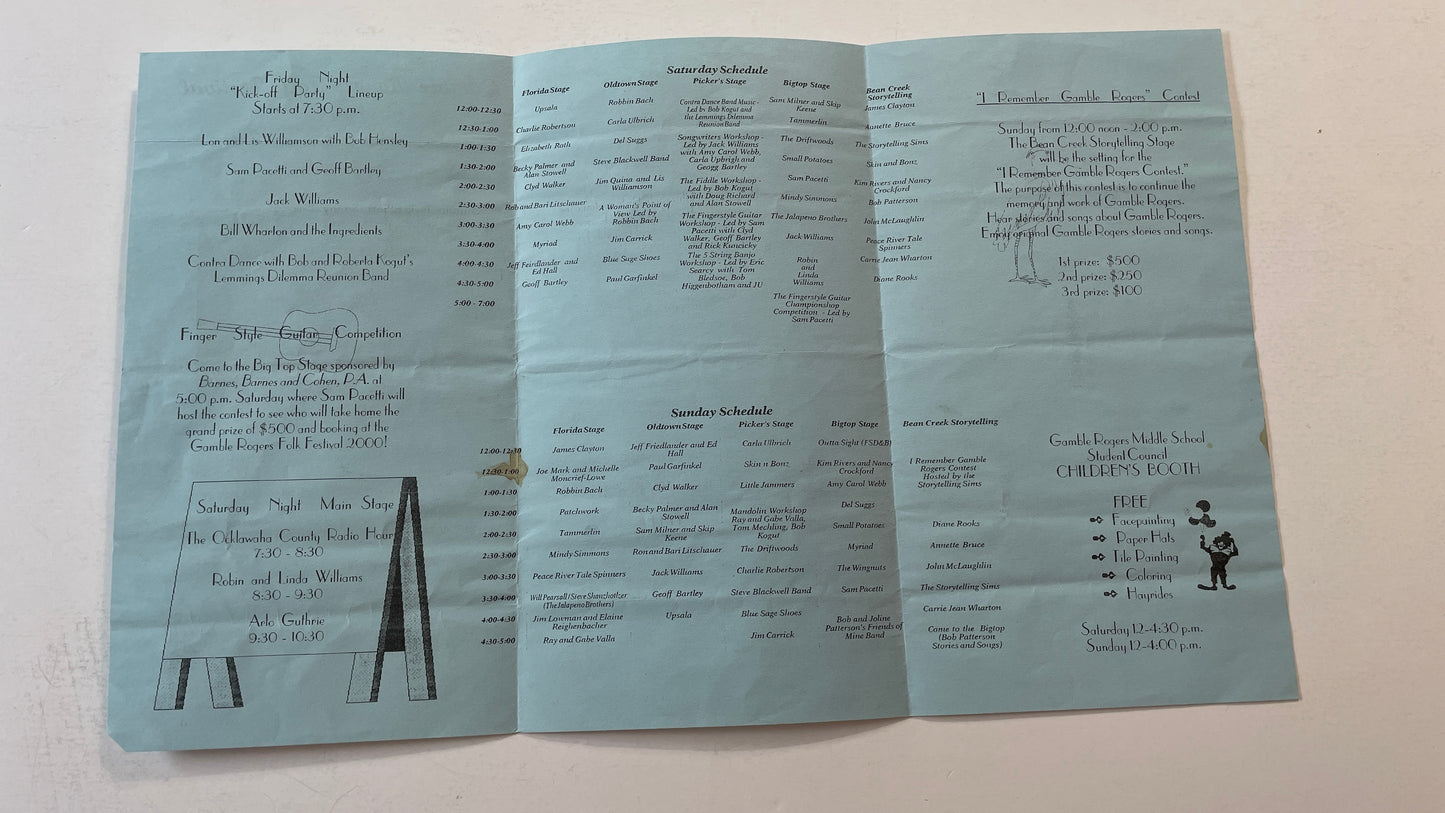 Friday Night
"Kick-off Party" Lineup
Starts at 7:30 p.m.
Lon and Lis Williamson with Bob Hensley
Sam Pacetti and Geoff Bartley
Jack Williams
Bill Wharton and the Ingredients
Contra Dance with Bob and Roberta Kogut's
Lemmings Dilemma Reunion Band
Finger Style Guitar Competition
Come to the Big Top Stage sponsored by
Barnes, Barnes and Cohen, P.A. at
5:00 p.m. Saturday where Sam Pacetti will
host the contest to see who will take home the
grand prize of $500 and booking at the
Gamble Rogers Folk Festival 2000!
Saturday Night Main Stage
The Ocklawaha County Radio Hour
7:30 - 8:30
Robin and Linda Williams
8:30 - 9:30
Arlo Guthrie
9:30 - 10:30
Saturday Schedule
12:00-12:30
12:30-1:00
1:00-1:30
1:30-2:00
2:00-2:30
2:30-3:00
3:00-3:30
3:30-4:00
4:00-4:30
4:30-5:00
5:00 - 7:00
Florida Stage
Upsala
Charlie Robertson
Elizabeth Roth
Becky Palmer and
Alan Stowell
Clyd Walker
Rob and Bari Litschauer
Amy Carol Webb
Myriad
Jeff Feirdlander and
Ed Hall
Geoff Bartley
Oldtown Stage
Robbin Bach
Carla Ulbrich
Del Suggs
Steve Blackwell Band
Jim Quina and Lis
Williamson
A Woman's Point of
View Led by
Robbin Bach
Jim Carrick
Blue Suge Shoes
Paul Garfinkel
Picker's Stage
Contra Dance Band Music -
Led by Bob Kogut and
the Lemmings Dilemma
Reunion Band
Songwriters Workshop -
Led by Jack Williams
with Amy Carol Webb,
Carla Upbrigh and
Geogg Bartley
The Fiddle Workshop -
Led by Bob Kogut
with Doug Richard
and Alan Stowell
The Fingerstyle Guitar
Workshop - Led by Sam
Pacetti with Clyd
Walker, Geoff Bartley
and Rick Kuncicky
The 5 String Banjo
Workshop - Led by Eric
Searcy with Tom
Bledsoe, Bob
Higgenbotham and JU
Bigtop Stage
Sam Milner and Skip
Keene
Tammerlin
The Driftwoods
Small Potatoes
Sam Pacetti
Mindy Simmons
The Jalapeno Brothers
Jack Williams
Robin
and
Linda
Williams
The Fingerstyle Guitar
Championshop
Competition - Led by
Sam Pacetti
Bean Creek
Storytelling
James Clayton
Annette Bruce
The Storytelling Sims
Skin and Bonz
Kim Rivers and Nancy
Crockford
Bob Patterson
John McLaughlin
Peace River Tale
Spinners
Carrie Jean Wharton
Diane Rooks
Sunday Schedule
12:00-12:30
12:30-1:00
1:00-1:30
1:30-2:00
2:00-2:30
2:30-3:00
3:00-3:30
3:30-4:00
4:00-4:30
4:30-5:00
Florida Stage
James Clayton
Joe Mark and Michelle
Moncrief-Lowe
Robbin Bach
Patchwork
Tammerlin
Mindy Simmons
Peace River Tale Spinners
Will Pearsall/Steve
(The Jalapeno Brothers)
Jim Lowman and Elaine
Reighenbacher
Ray and Gabe Valla
Oldtown Stage
Jeff Friedlander and Ed
Hall
Paul Garfinkel
Clyd Walker
Becky Palmer and Alan
Stowell
Sam Milner and Skip
Keene
Ron and Bari Litschauer
Jack Williams
Geoff Bartley
Upsala
Picker's Stage
Carla Ulbrich
Skin n Bonz
Little Jammers
Mandolin Workshop
Ray and Gabe Valla,
Tom Mechling, Bob
Kogut
The Driftwoods
Charlie Robertson
Steve Blackwell Band
Blue Sage Shoes
Jim Carrick
Bigtop Stage
Outta Sight (FSD&B)
Kim Rivers and Nancy
Crockford
Amy Carol Webb
Del Suggs
Small Potatoes
Myriad
The Wingnuts
Sam Pacetti
Bob and Joline
Patterson's Friends of
Mine Band
Bean Creek Storytelling
I Remember Gamble
Rogers Contest
Hosted by the
Storytelling Sims
Diane Rooks
Annette Bruce
John McLaughlin
The Storytelling Sims
Carrie Jean Wharton
Come to the Bigtop
(Bob Patterson
Stories and Songs)
"I Remember Gamble Rogers" Contest
Sunday from 12:00 noon - 2:00 p.m.
The Bean Creek Storytelling Stage
will be the setting for the
"I Remember Gamble Rogers Contest."
The purpose of this contest is to continue the
memory and work of Gamble Rogers.
Hear stories and songs about Gamble Rogers.
Enjoy original Gamble Rogers stories and songs.
1st prize: $500
2nd prize: $250
3rd prize: $100
Gamble Rogers Middle School
Student Council
CHILDREN'S BOOTH
FREE
Facepainting
Paper Hats
Tile Painting
Coloring
Hayrides
Saturday 12-4:30 p.m.
Sunday 12-4:00 p.m.